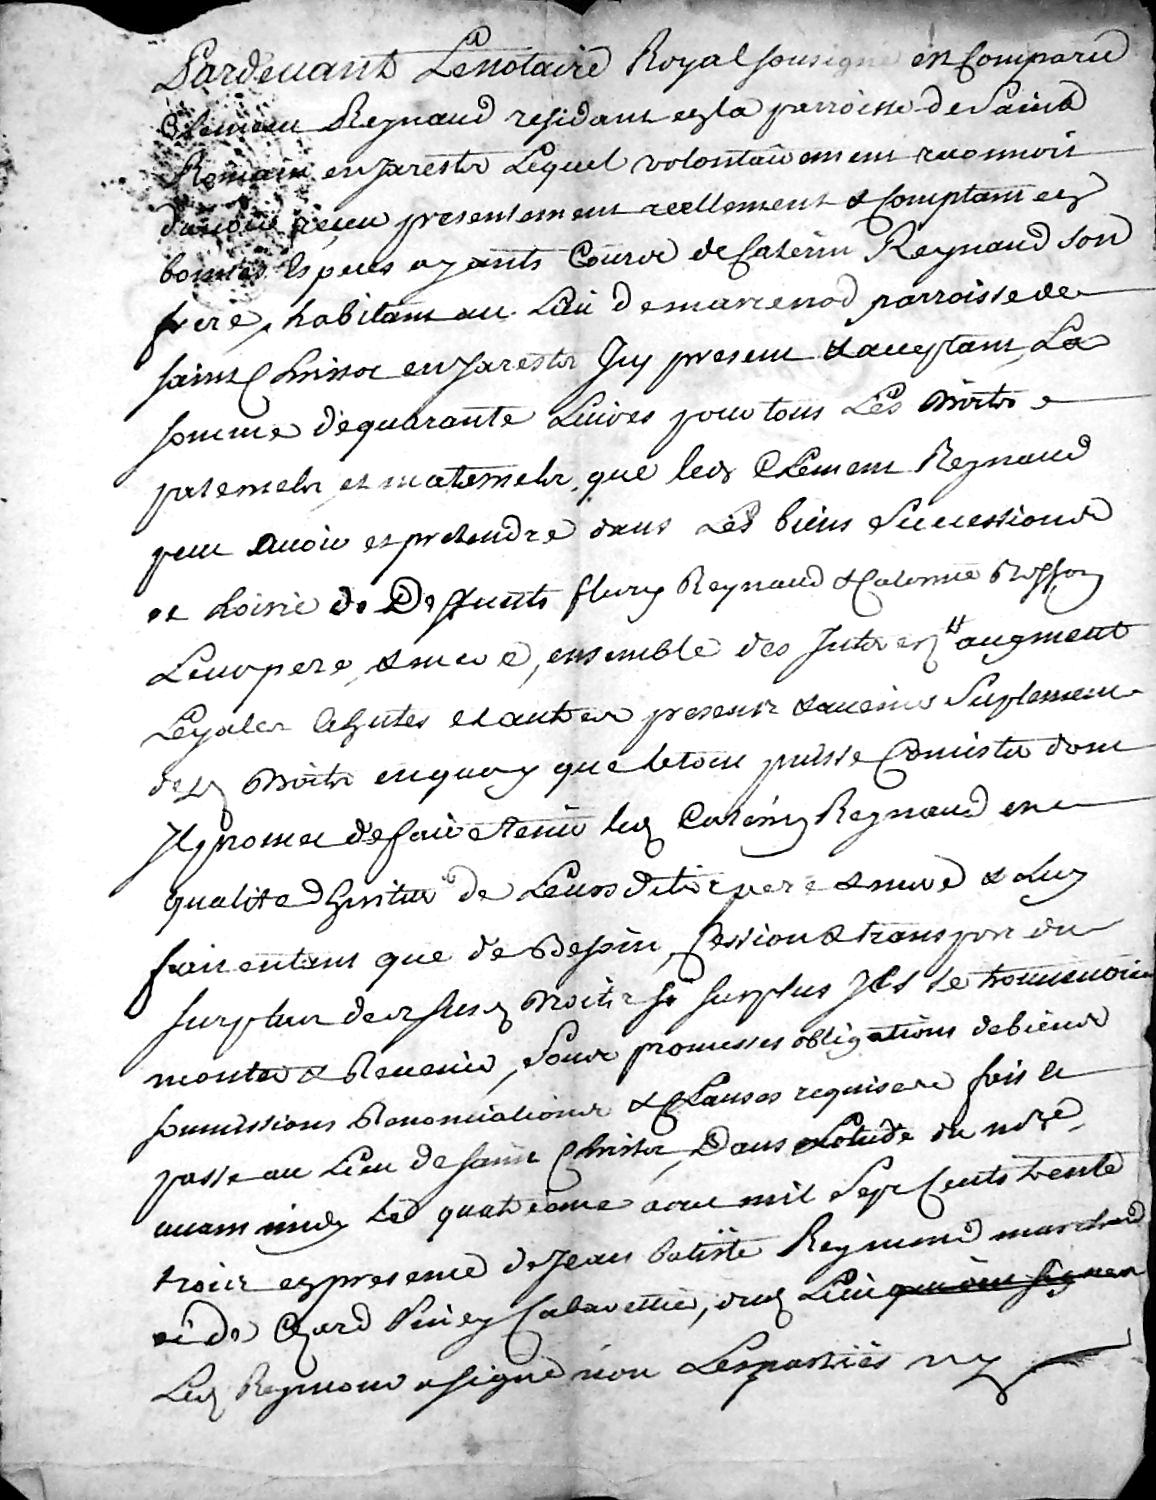 Pardevant Le notaire Royal sousigné est Comparu
Clement Reynaud residant en la parroisse de Saint
Romain en Jarestz Lequel volontairement reconnoit
d'avoir reçeu presentement reellement & Comptant en
bonnes Especes ayants Cours de Caterin Reynaud son
frere, habitant au Lieu de marcenod parroisse de
saint Christot en Jarestz Icy present & acceptant, La
somme de quarante Livres pour tous Les droits
paternels et maternels, que led Clement Reynaud
peut avoir et pretendre dans Les biens Successions
et hoirie de Deffunts fleury Reynaud & Caterine
Leur pere & mere, ensemble des augment
Legales et autres presents & avenirs Suplement
desd droits en quoy que le tout puisse Consister dont
Il promet de faire tenir led Caterin Reynaud en
qualite d'heritier de Leurs dits pere & mere & Luy
fait entant que de Besoin, Cession & transport du
surplus desd droits sy surplus Ils se trouvoient
monter & Revenir, Sous promesses obligations de biens
soumissions Renonciations & Clauses requises fait et
passé au Lieu de saint Christot, Dans Letude du nore,
avant midy Le quatrieme aout mil Sept Cents trente
trois en presence de Jean batiste Reymond marchand
et de Cabarettier, dud Lieu
Led Reymond a signé non Les parties